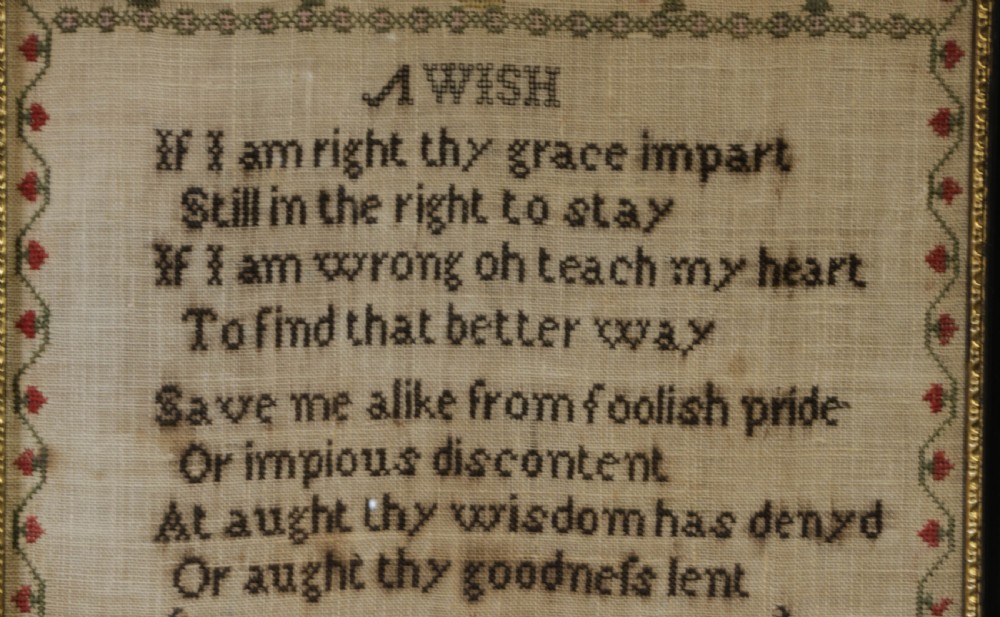 A WISH
If I am right thy grace impart
Still in the right to stay
If I am wrong oh teach my heart
To find that better way
Save me alike from foolish pride
Or impious discontent
At aught thy wisdom has denyd
Or aught thy goodneſs lent